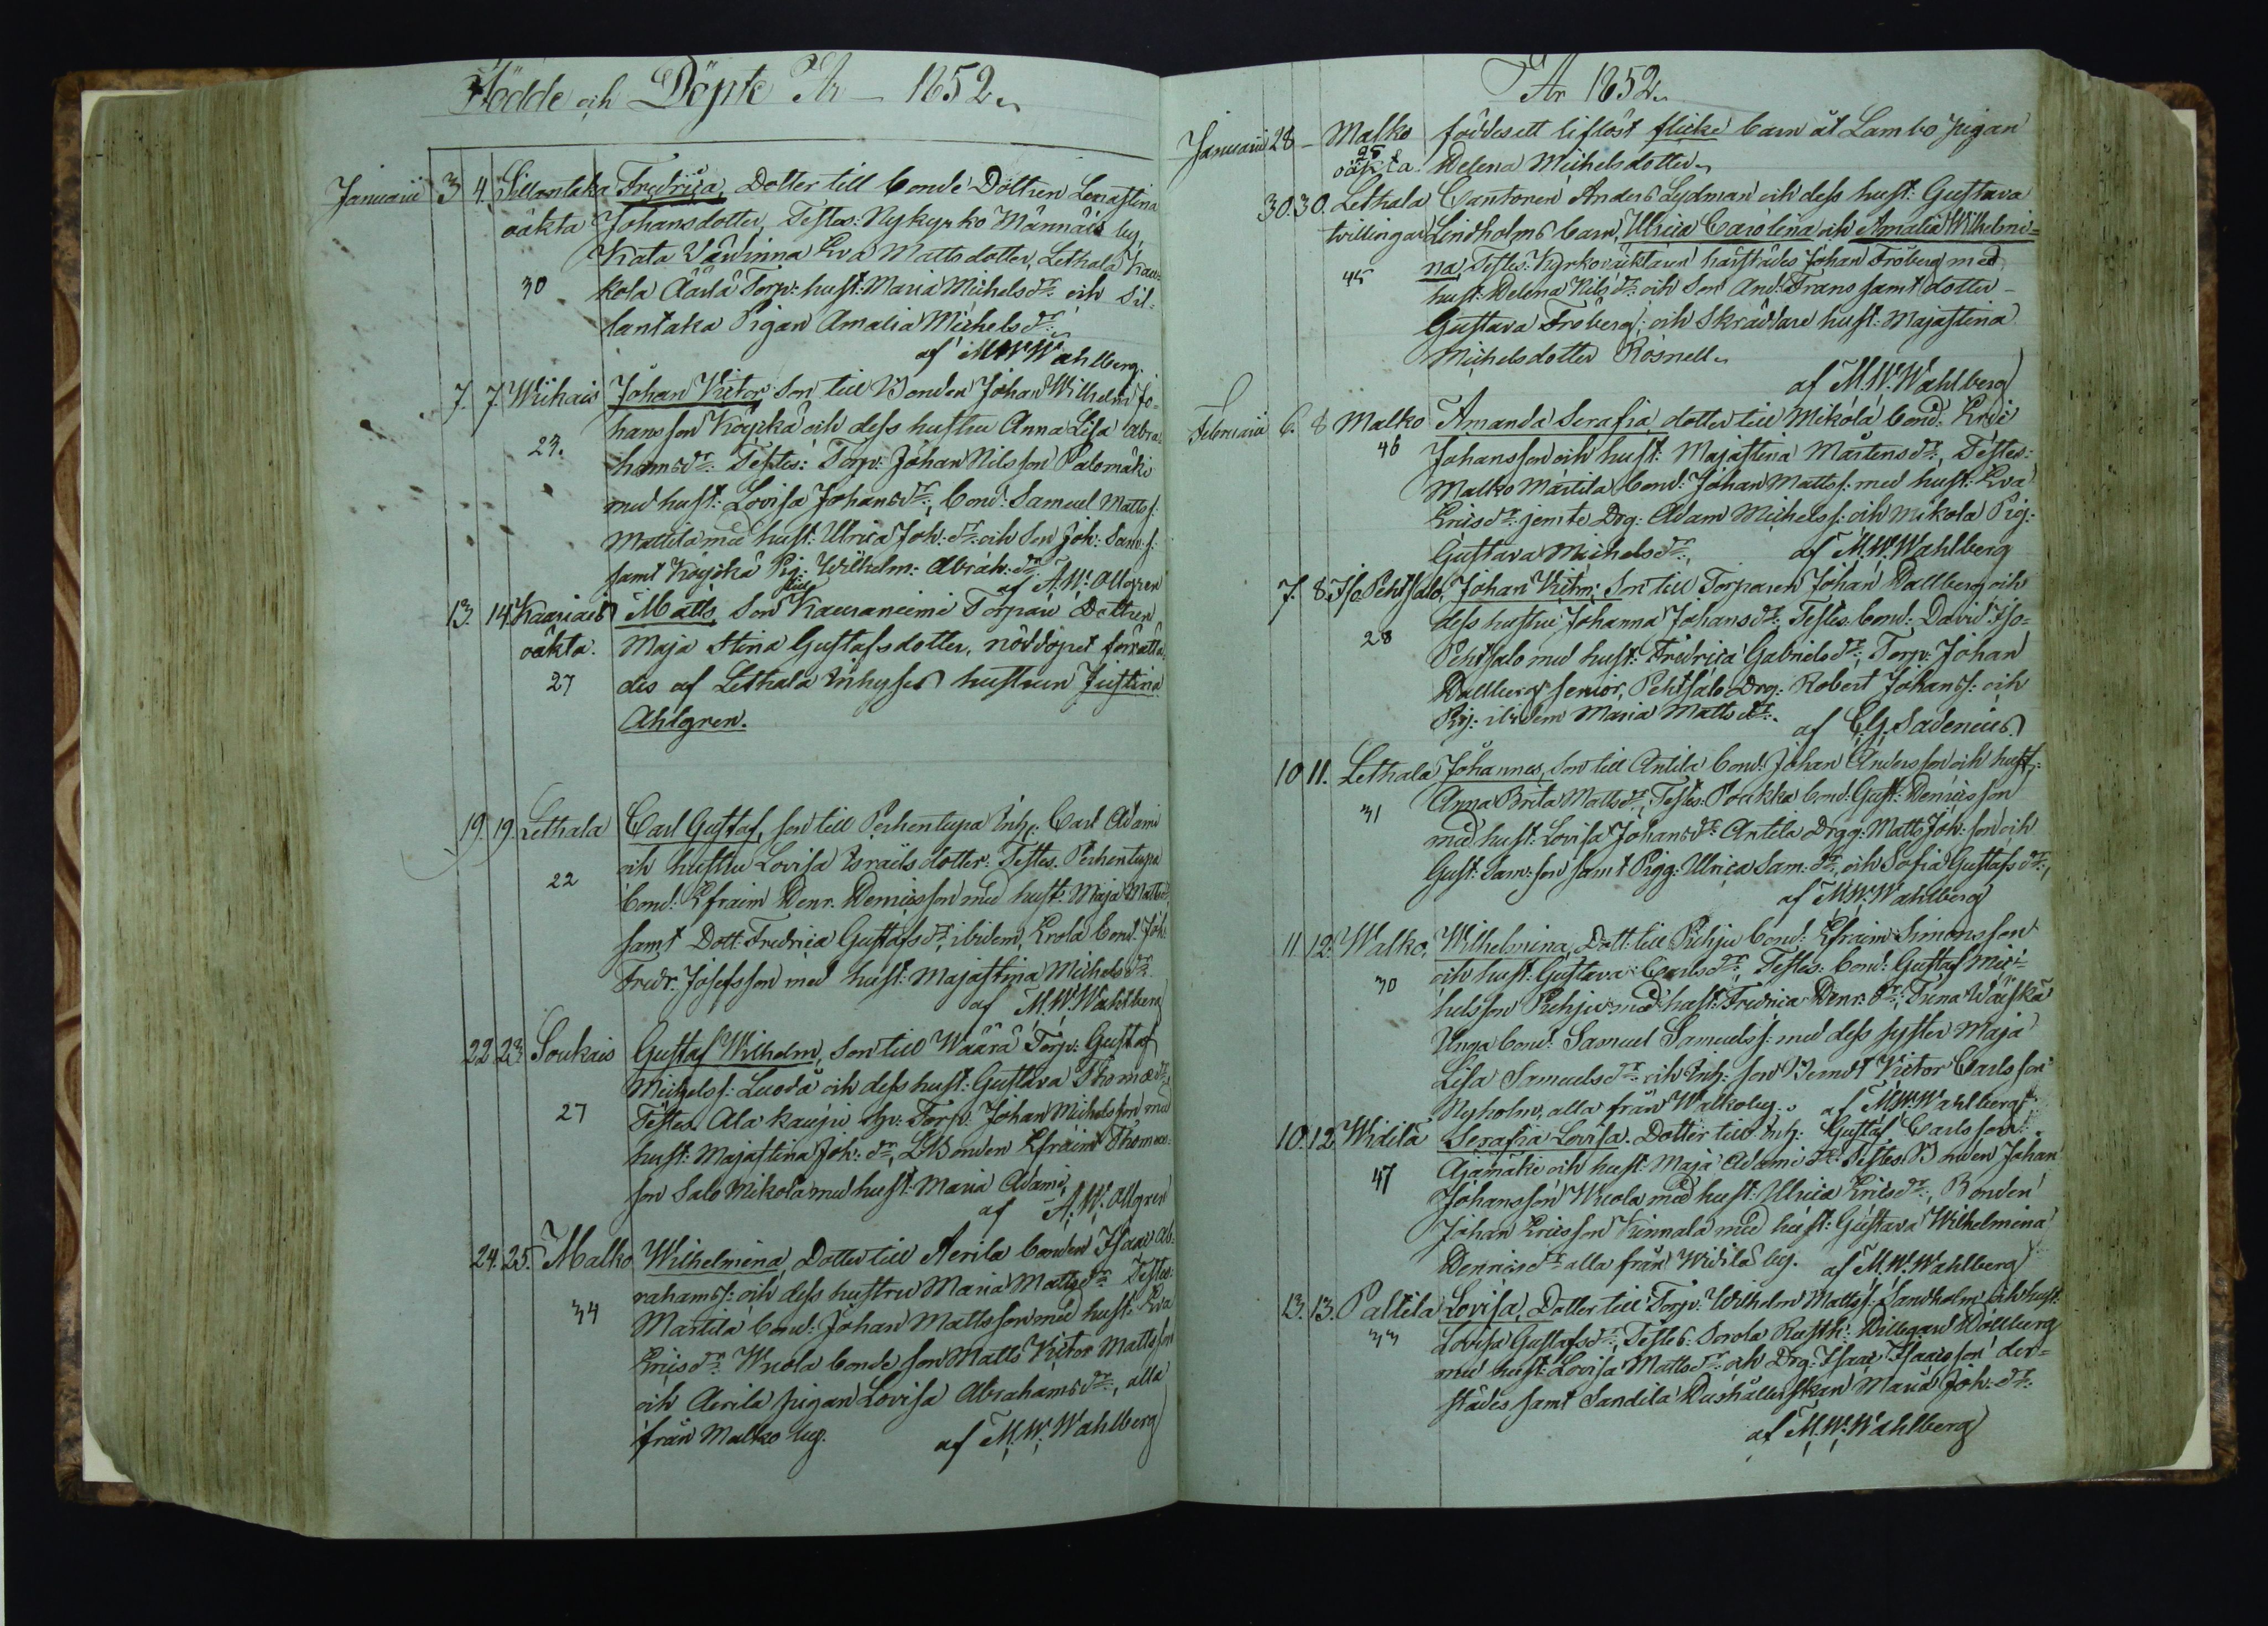 Födde och Döpte År 1852.
Januarii 3 4. Sillantaka Fredrica, Dotter till bonde Dottren Lenastina
oäkta Johansdotter, Testes: Nykyrko Männäis by
Kata Wävinna Eva Mattsdotter, Lethala Kau=
30 kola Äärlä Torp: hust: Maria Michelsdr: och Sil-
lantaka Pigan Amalia Michelsdr:
af M W Wahlberg.
7. 7. Wiihais Johan Victor son till Bonden Johan Wilhelm Jo=
hansson Köykä och dess hustru Anna Lisa Abra=
23. hamsdr: Testes: Torp: Johan Nilsson Palomäki
med hust: Lovisa Johansdr:, bond: Samuel Matts s:
Mattila med hust: Ulrica Joh: dr: och Son Joh: Sam: s:
samt Köykä Pig: Wilhelm: Abrah: dr:
af A. W. Allgren
13. 14. Kaariais Matts, Son Kauraniemi Torpare Dottren
oäkta. Maja Stina Gustafsdotter, nöddopet förrätta
27 des af Lethala Inhyses hustrun Justina
Ahlgren.
19. 19. Lethala Carl Gustaf, son till Perhentupa Inh: Carl Adami
och hustru Lovisa Israelsdotter. Testes. Perhentupa
22 bond: Efraim Henr. Henricsson med hust: Maja Mattsd
samt Dott: Fredrica Gustafsdr:, ibidem, Erola bond: Joh:
Fredr. Josefsson med hust: Majastina Michelsdr:
af M. W. Wahlberg
22 23 Soukais Gustaf Wilhelm, Son till Wäärä Torp: Gustaf
Michels s: Luoda och dess hust: Gustava Thomædr:
27 Testes. Ala kauju by: Torp: Johan Michelsson med
hust: Majastina Joh: dr:, LBonden Efraim Thomas=
son Salo Mikola med hust: Maria Adami.
af A. W. Allgren
24. 25. Malko Wilhelmina, Dotter till Aerila bonden Isaac Ab=
rahams s: och dess hustru Maria Mattsdr: Testes:
34 Martila bond: Johan Mattsson med hust: Eva
Ericsdr: Wuola bonde son Matts Victor Mattsson
och Aerila pigan Lovisa Abrahamsdr:, alla
från Malko by. af M. W. Wahlberg
År 1852.
Januarii 28 – Malko föddes ett liflöst flicke barn åt Lambo pigan
28
oäkta Helena Michelsdotter.
30. 30. Lethala Cantoren Anders Lydman och dess hust: Gustava
tvillingar Lindholms barn, Ulrica Carolina och Amalia Wilhelmi=
45 na, Testes: Kyrkoväktaren härstädes Johan Fröberg med
hust: Helena Nilsdr: och Son And: Frans samt dotter
Gustava Fröberg, och Skräddare hust: Majastina
Michelsdotter Rosnell.
af M. W. Wahlberg
Februarii 6. 8 Malko Amanda Serafia, dotter till Mikola bond: Erici
46 Johansson och hust: Majastina Mårtensdr:, Testes:
Malko Martila bond: Johan Matts s: med hust: Eva
Ericsdr: jemte Drg: Adam Michels s: och Mikola Pig:
Gustava Michelsdr:, af M. W. Wahlberg
7. 8. Iso Pehtsalo, Johan Victor, Son till Torparen Johan Dallberg och
28 dess hustru Johanna Johansdr:, Testes: bond: David Iso=
Pehtsalo med hust: Fredrica Gabrielsdr:, Torp: Johan
Dallberg senior, Pehtsalo Drg: Robert Johans s: och
Pig: ibidem Maria Mattsdr:.
af C. G. Sadenius.
10 11. Lethala Johannes, Son till Antila bond: Johan Andersson och hust:
31 Anna Brita Mattsdr:, Testes: Poukka bond: Gust: Henricsson
med hust: Lovisa Johansdr: Antila Drgg: Matts Joh: son och
Gust: Sam: son samt Pigg: Ulrica Sam: dr:, och Sofia Gustafsdr:,
af M. W. Wahlberg
11 12. Walko, Wilhelmina, Dott: till Pirhju bond: Efraim Simonsson
30 och hust: Gustava Carlsdr:, Testes: bond: Gustaf Mic=
helsson Pirhju med hust: Fredrica Henr: dr:, Tuna Wäiskä
Unga bond: Samuel Samuels s: med dess syster Maja
Lisa Samuelsdr: och Inh: Son Berndt Victor Carlsson
Nyholm, alla från Walko by. af M. W. Wahlberg.
10. 12 Widilä Serafia Lovisa. Dotter till Inh: Gustaf Carlsson
47 Ajamäki och hust: Maja Adami dr: Testes. Bonden Johan
Johansson Wuola med hust: Ulrica Ericsdr:, Bonden
Johan Ericsson Kinnala med hust: Gustava Wilhelmina
Henricsdr: alla från Widilä by. af M. W. Wahlberg
13. 13. Paltila Lovisa, Dotter till Torp: Wilhelm Matts s: Sandholm och hust:
33 Lovisa Gustafsdr:, Testes: Sorola Rusth: Hellegard Höllberg
med hust: Lovisa Mattsdr: och Drg: Isaac Isacsson der=
städes samt Sandila Hushållerskan Maria Joh: dr:
af M. W. Wahlberg